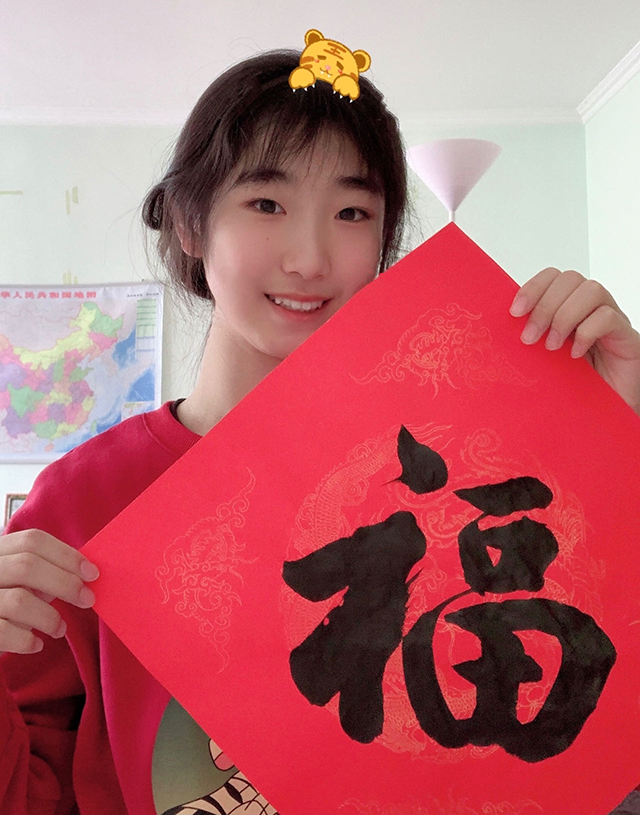 王
华人民共和国地图
福